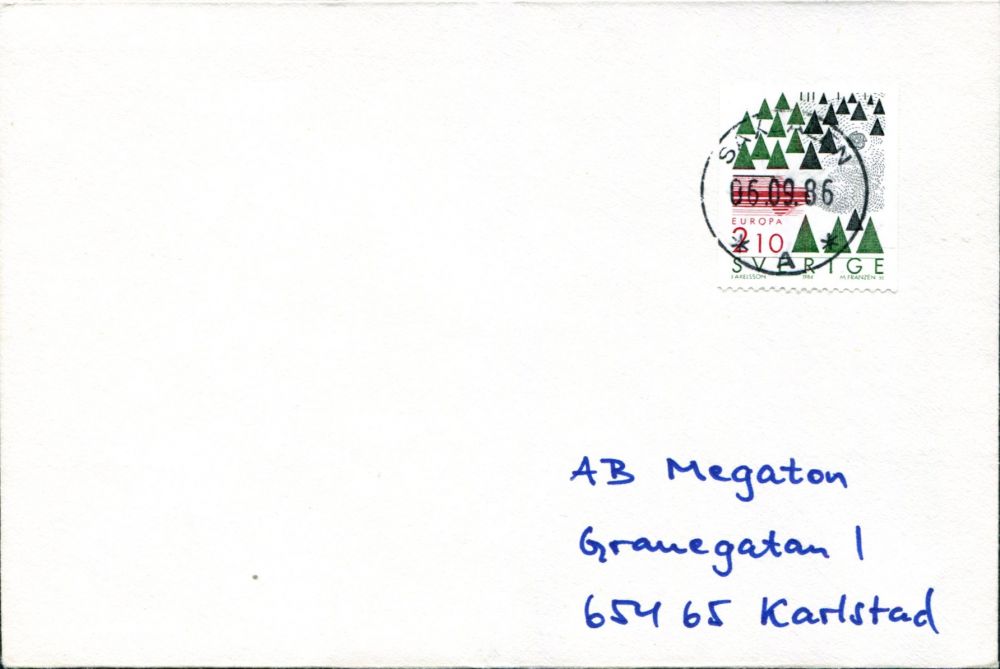 06.09.86
EUROPA
2.10
A
SVERIGE
1986
M. FRANZÉN SC
AB Megaton
Granegatan 1
654 65 Karlstad